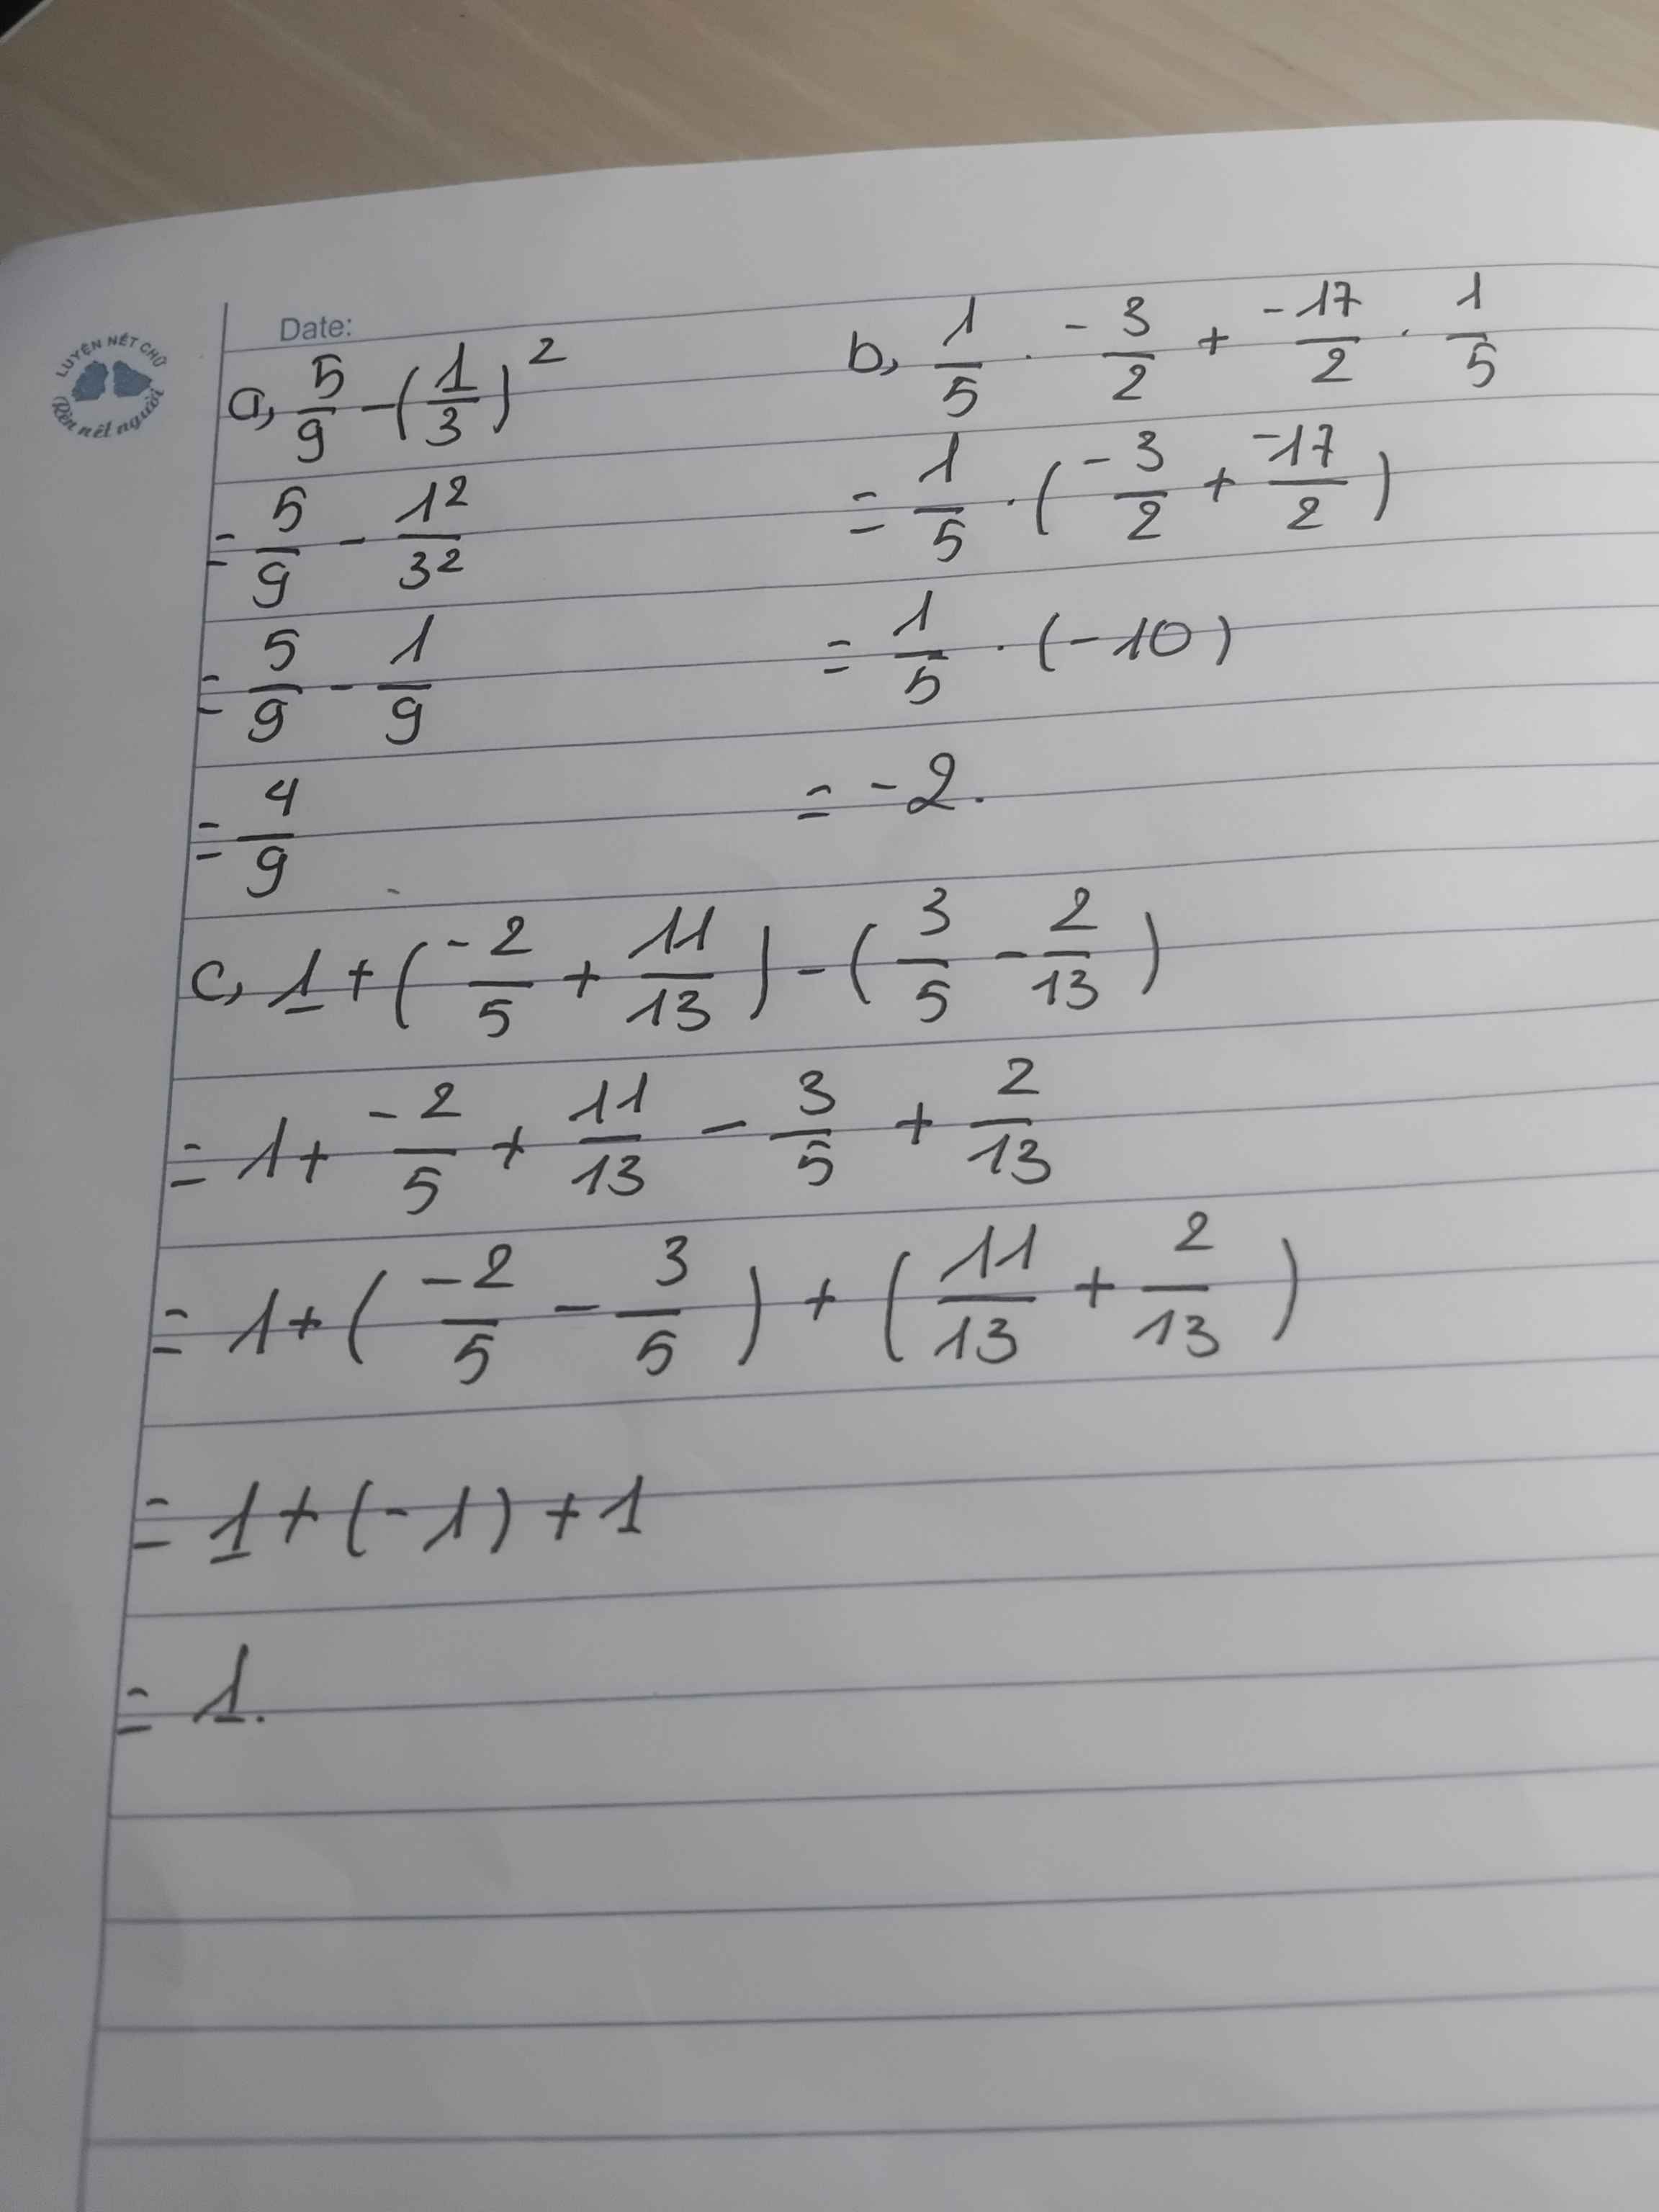 LUYỆN NÉT CHỮ
Rèn nết người
Date:
a, 5/9 - (1/3)²
= 5/9 - 1²/3²
= 5/9 - 1/9
= 4/9
b, 1/5 . -3/2 + -17/2 . 1/5
= 1/5 . (-3/2 + -17/2)
= 1/5 . (-10)
= -2.
c, 1 + (-2/5 + 11/13) - (3/5 - 2/13)
= 1 + -2/5 + 11/13 - 3/5 + 2/13
= 1 + (-2/5 - 3/5) + (11/13 + 2/13)
= 1 + (-1) + 1
= 1.